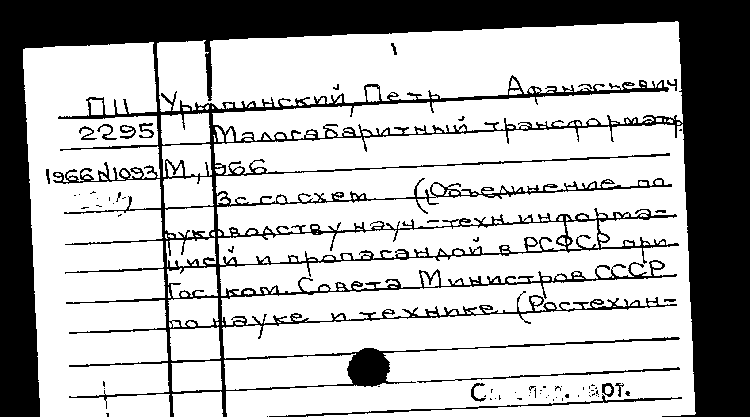 1
П11 Урюпинский, Петр Афанасьевич
2295 Малогабаритный трансформатор
1966 N1093 М., 1966
3с. со схем (Объединение по
руководству науч.-техн информа-
цией и пропагандой в РСФСР при
Гос. ком. Совета Министров СССР
по науке и технике. (Ростехин-
См. след. карт.